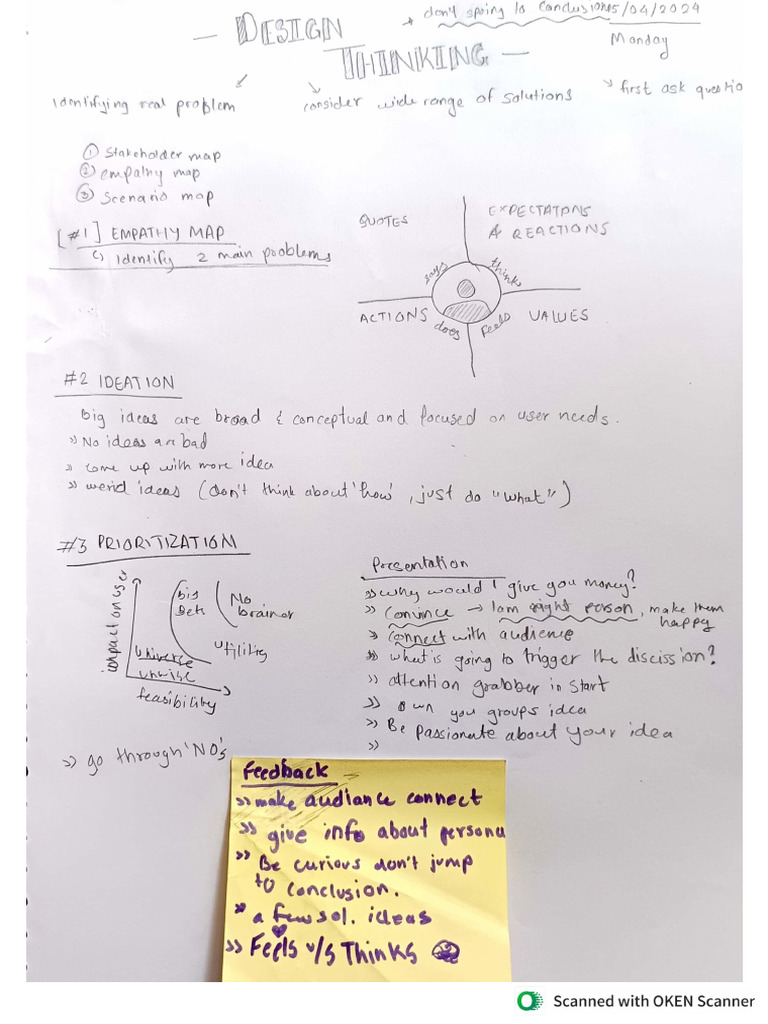 * don't spring to conclusions
5/04/2024
Monday
- DESIGN
THINKING -
Identifying real problem
consider wide range of solutions
first ask questio
① Stakeholder map
② empathy map
③ Scenario map
[#1] EMPATHY MAP
Identify 2 main problems
QUOTES
EXPECTATIONS
& REACTIONS
says
thinks
ACTIONS
does
feels
VALUES
#2 IDEATION
Big ideas are broad & conceptual and focused on user needs.
» No ideas are bad
» come up with more idea
» werid ideas (don't think about 'how', just do "what")
#3 PRIORITIZATION
impact on user
big
bets
No
brainer
utility
Universe
unwise
feasibility
» go through 'NO's
Presentation
» Why would I give you money?
» Convince → I am right person, make them
happy
» connect with audience
» what is going to trigger the discission?
» attention grabber in start
» own you groups idea
» Be passionate about your idea
»
Feedback
» make audiance connect
» give info about persona
» Be curious don't jump
to conclusion.
* a few sol. ideas
» Feels v/s Thinks
Scanned with OKEN Scanner